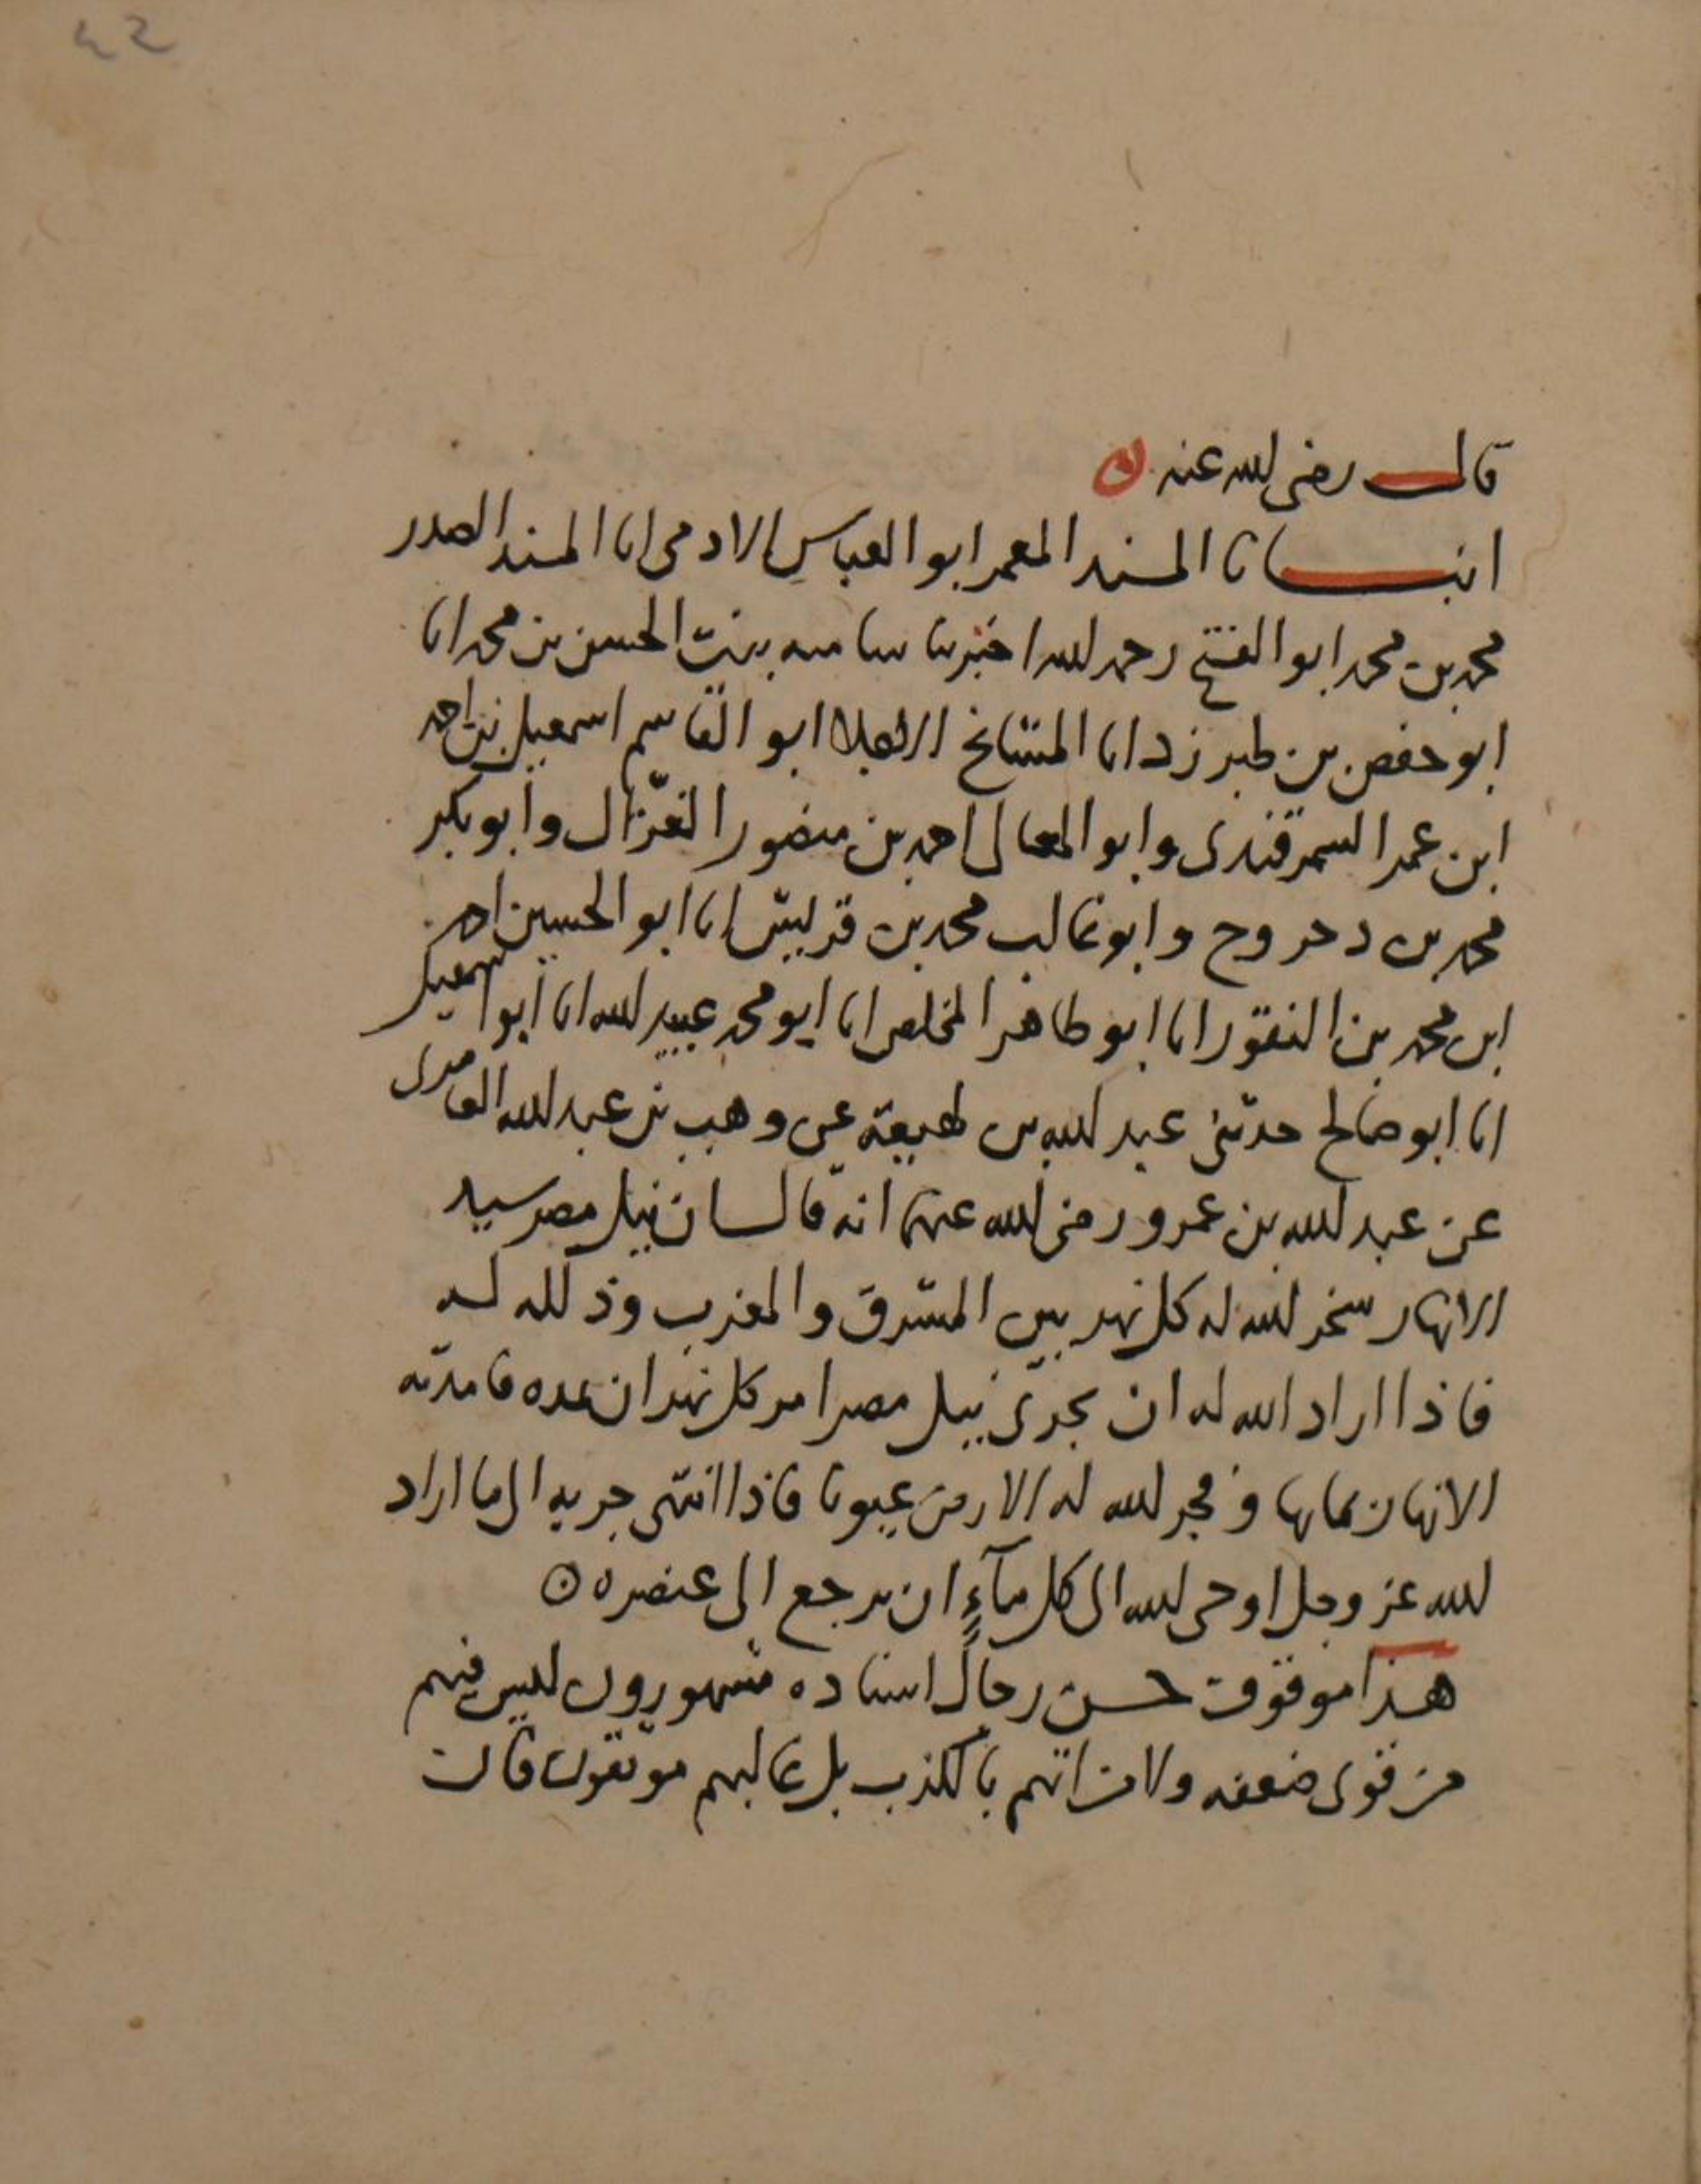 ٤٢
قال رضى الله عنه ن
انبانا المسند المعمر ابو العباس الادمى انا المسند الصدر
محمد بن محمد ابو الفتح رحمه الله اخبرتنا سامية بنت الحسن بن محمد انا
ابو حفص بن طبرزد انا المشايخ الاجلا ابو القاسم اسمعيل بن احمد
ابن عمر السمرقندى وابو المعالى احمد بن منصور الغزّال وابو بكر
محمد بن دحروج وابو غالب محمد بن قريش انا ابو الحسين احمد
ابن محمد بن النقور انا ابو طاهر المخلص انا ابو محمد عبيد الله انا ابو اسمعيل
انا ابو صالح حدثنى عبد الله بن لهيعة عن وهب بن عبد الله المعافرى
عن عبد الله بن عمرو رضى الله عنهما انه قال ان نيل مصر سيد
الانهار سخر الله له كل نهر بين المشرق والمغرب وذلله له
فاذا اراد الله له ان يجرى نيل مصر امر كل نهر ان يمده فامدته
الانهار بمايها وفجر الله له الارض عيونا فاذا انتهى جريه الى ما اراد
الله عز وجل اوحى الله الى كل مآءٍ ان يرجع الى عنصره ن
هذا موقوف حسن رجال اسناده مشهورون ليس فيهم
من قوى ضعفه ولا من اتهم بالكذب بل غالبهم موثقون قال